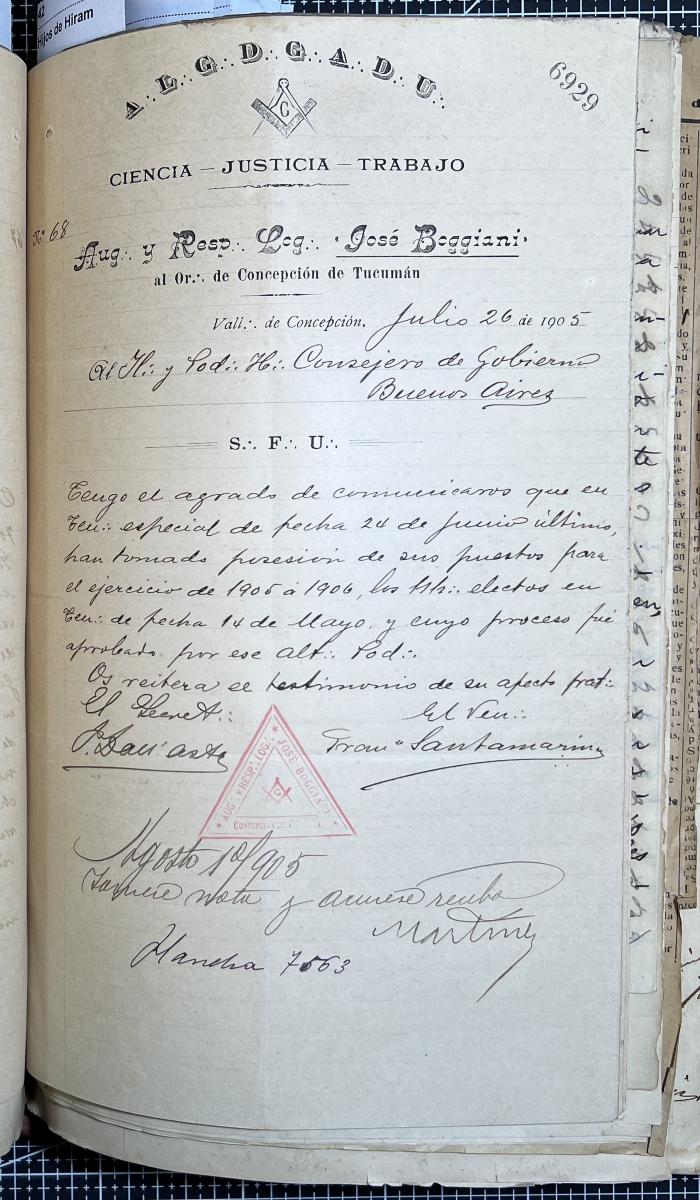 42
Hijos de Hiram
6929
A.·. L.·. G.·. D.·. G.·. A.·. D.·. U.·.
G
CIENCIA – JUSTICIA – TRABAJO
Nº 68
Aug.·. y Resp.·. Log.·. "José Boggiani"
al Or.·. de Concepción de Tucumán
Vall.·. de Concepción, Julio 26 de 1905
Al Il.·. y Pod.·. H.·. Consejero de Gobierno
Buenos Aires
S.·. F.·. U.·.
Tengo el agrado de comunicaros que en
Ten.·. especial de fecha 24 de Junio último,
han tomado posesión de sus puestos para
el ejercicio de 1905 á 1906, los hh.·. electos en
Ten.·. de fecha 14 de Mayo y cuyo proceso fué
aprobado por ese alt.·. Pod.·.
Os reitera el testimonio de su afecto frat.·.
El Secret.·. El Ven.·.
Franco Santamarina
AUG.·. Y RESP.·. LOG.·. JOSÉ BOGGIANI
CONCEPCIÓN DE
Agosto 10/905
Tomese nota y acusese recibo
Martinez
Plancha 7563